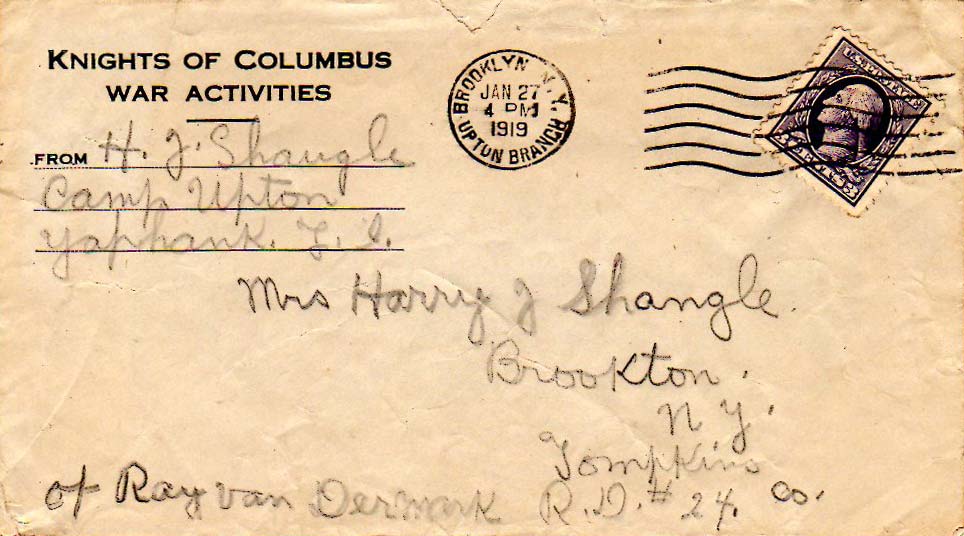 KNIGHTS OF COLUMBUS
WAR ACTIVITIES
FROM H. J. Shangle
Camp Upton
Yaphank. L. I.
BROOKLYN N.Y.
JAN 27
4 PM
1919
UPTON BRANCH
Mrs Harry J Shangle.
Brookton.
N Y.
Tompkins Co.
of Ray van Dermark R.D. # 24.